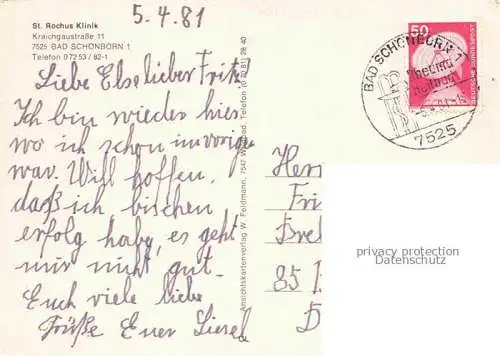 5.4.81
St. Rochus Klinik
Kraichgaustraße 11
7525 BAD SCHÖNBORN 1
Telefon 0 72 53 / 82-1
Liebe Else lieber Fritz!
Ich bin wieder hier
wo ich schon im vorige
war. Will hoffen,
daß ich bischen
erfolg habe, es geht
mir nicht gut.
Euch viele liebe
Grüße Euer Liesel
Ansichtskartenverlag W. Feldmann, 7547 Wildbad, Telefon (0 70 81) 28 40
50
DEUTSCHE BUNDESPOST
BAD SCHÖNBORN 1
Rheuma
7525
Herrn
Fri
85
privacy protection
Datenschutz